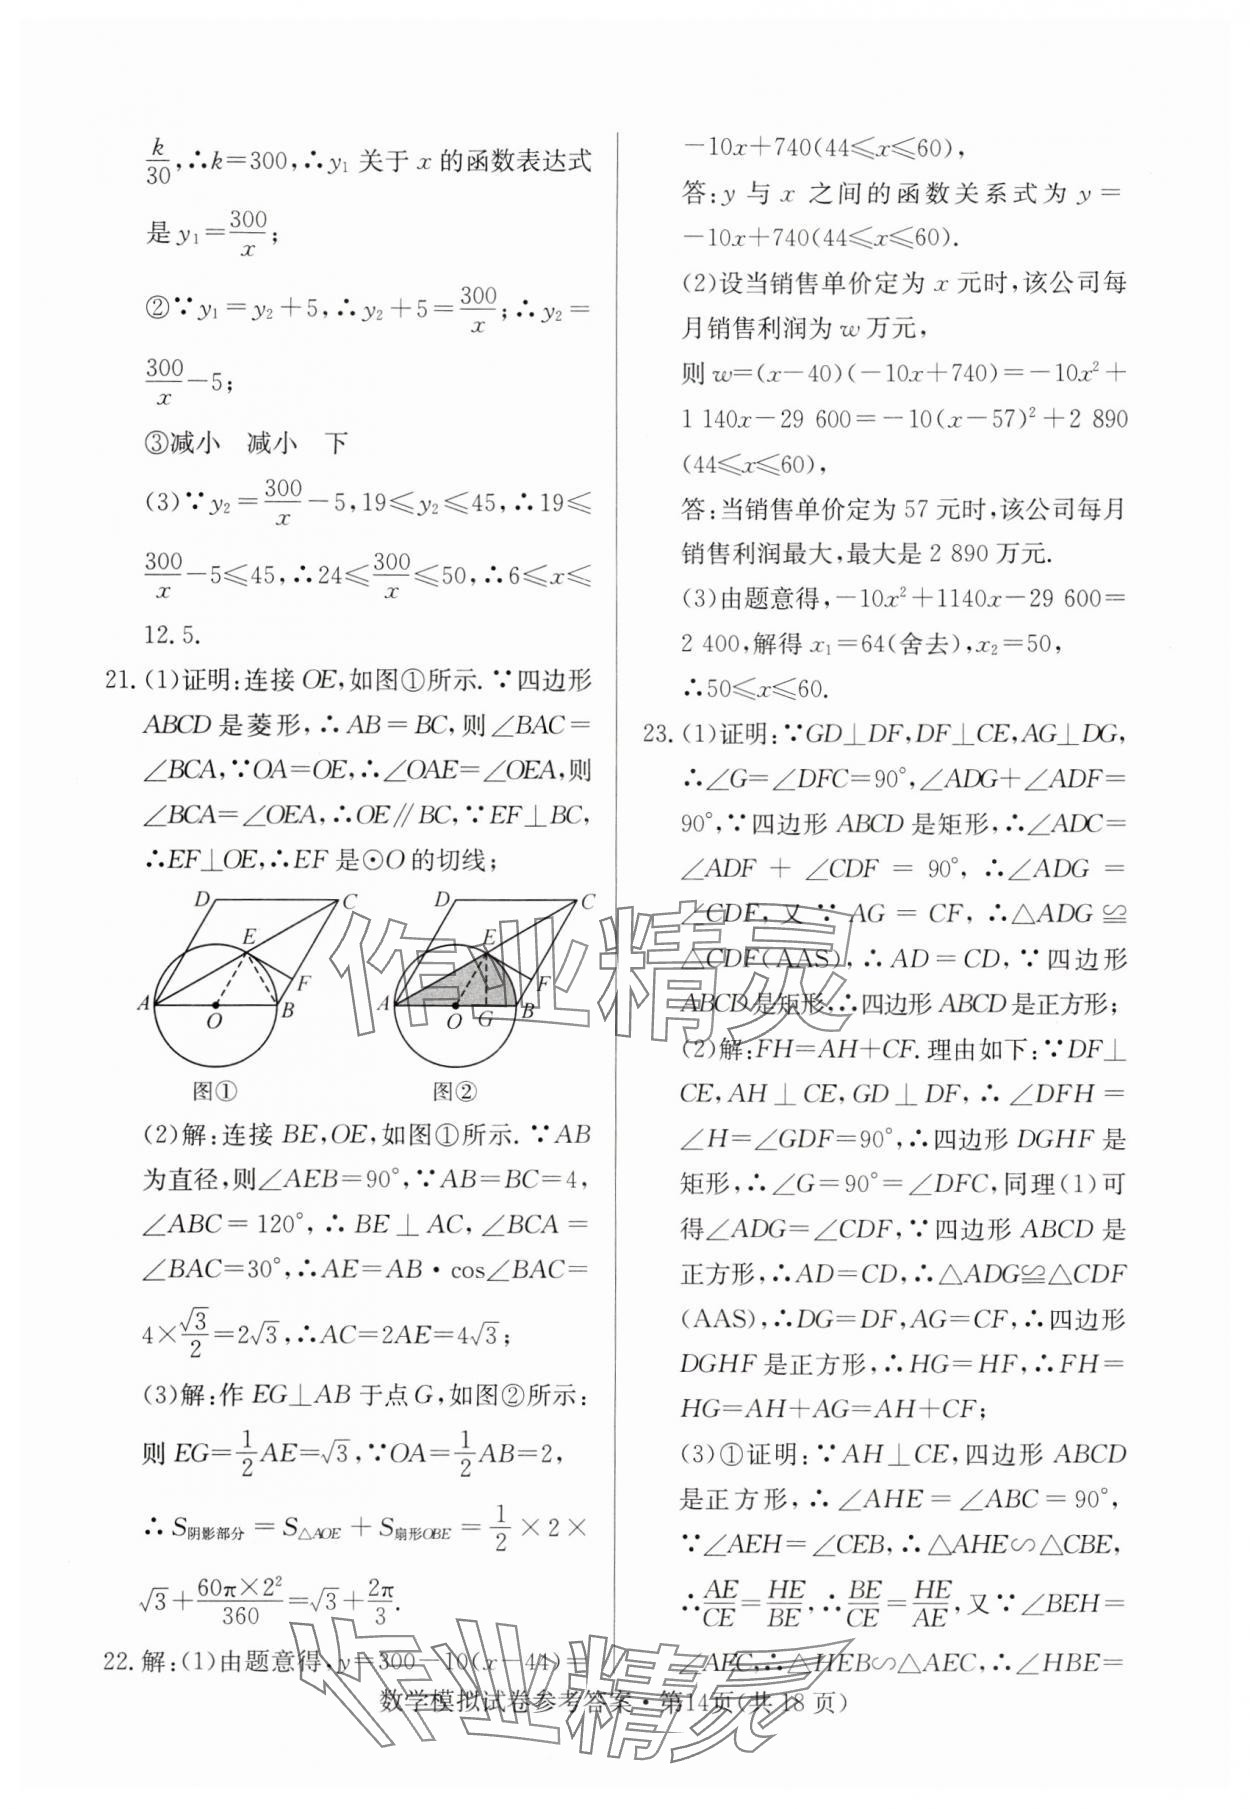 k/30,∴k=300,∴y₁ 关于 x 的函数表达式
是 y₁=300/x;
②∵y₁=y₂+5,∴y₂+5=300/x;∴y₂=
300/x-5;
③减小 减小 下
(3)∵y₂=300/x-5,19≤y₂≤45,∴19≤
300/x-5≤45,∴24≤300/x≤50,∴6≤x≤
12.5.
21.(1)证明:连接 OE,如图①所示.∵四边形
ABCD 是菱形,∴AB=BC,则∠BAC=
∠BCA,∵OA=OE,∴∠OAE=∠OEA,则
∠BCA=∠OEA,∴OE∥BC,∵EF⊥BC,
∴EF⊥OE,∴EF 是⊙O 的切线;
D C E F A O B
图①
D C E F A O G B
图②
(2)解:连接 BE,OE,如图①所示.∵AB
为直径,则∠AEB=90°,∵AB=BC=4,
∠ABC=120°,∴BE⊥AC,∠BCA=
∠BAC=30°,∴AE=AB·cos∠BAC=
4×√3/2=2√3,∴AC=2AE=4√3;
(3)解:作 EG⊥AB 于点 G,如图②所示:
则 EG=1/2AE=√3,∵OA=1/2AB=2,
∴S阴影部分=S△AOE+S扇形OBE=1/2×2×
√3+60π×2²/360=√3+2π/3.
22.解:(1)由题意得,y=300-10(x-44)=
-10x+740(44≤x≤60),
答:y 与 x 之间的函数关系式为 y=
-10x+740(44≤x≤60).
(2)设当销售单价定为 x 元时,该公司每
月销售利润为 w 万元,
则 w=(x-40)(-10x+740)=-10x²+
1 140x-29 600=-10(x-57)²+2 890
(44≤x≤60),
答:当销售单价定为 57 元时,该公司每月
销售利润最大,最大是 2 890 万元.
(3)由题意得,-10x²+1140x-29 600=
2 400,解得 x₁=64(舍去),x₂=50,
∴50≤x≤60.
23.(1)证明:∵GD⊥DF,DF⊥CE,AG⊥DG,
∴∠G=∠DFC=90°,∠ADG+∠ADF=
90°,∵四边形 ABCD 是矩形,∴∠ADC=
∠ADF+∠CDF=90°,∴∠ADG=
∠CDF,又∵AG=CF,∴△ADG≌
△CDF(AAS),∴AD=CD,∵四边形
ABCD是矩形,∴四边形 ABCD 是正方形;
(2)解:FH=AH+CF.理由如下:∵DF⊥
CE,AH⊥CE,GD⊥DF,∴∠DFH=
∠H=∠GDF=90°,∴四边形 DGHF 是
矩形,∴∠G=90°=∠DFC,同理(1)可
得∠ADG=∠CDF,∵四边形 ABCD 是
正方形,∴AD=CD,∴△ADG≌△CDF
(AAS),∴DG=DF,AG=CF,∴四边形
DGHF 是正方形,∴HG=HF,∴FH=
HG=AH+AG=AH+CF;
(3)①证明:∵AH⊥CE,四边形 ABCD
是正方形,∴∠AHE=∠ABC=90°,
∵∠AEH=∠CEB,∴△AHE∽△CBE,
∴AE/CE=HE/BE,∴BE/CE=HE/AE,又∵∠BEH=
∠AEC,∴△HEB∽△AEC,∴∠HBE=
数学模拟试卷参考答案·第14页(共 18 页)
作业精灵
作业精灵